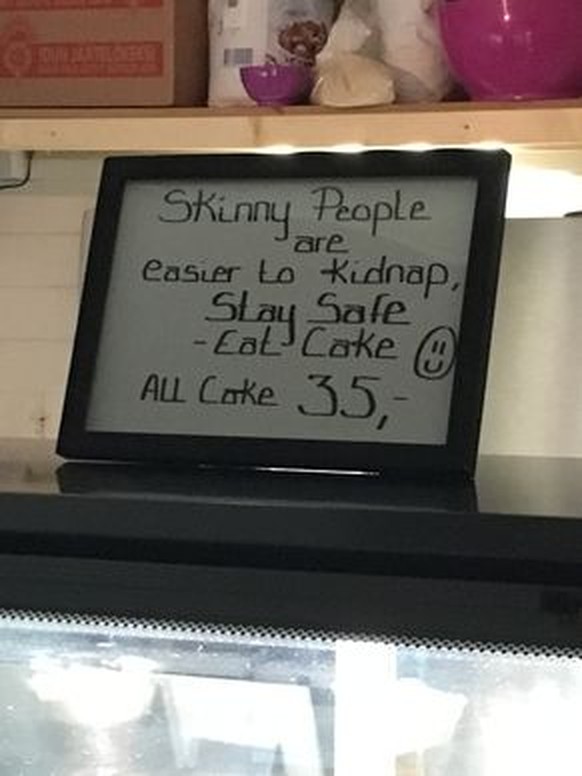 Skinny People
are
easier to kidnap,
Stay Safe
- Eat Cake
All Cake 35,-